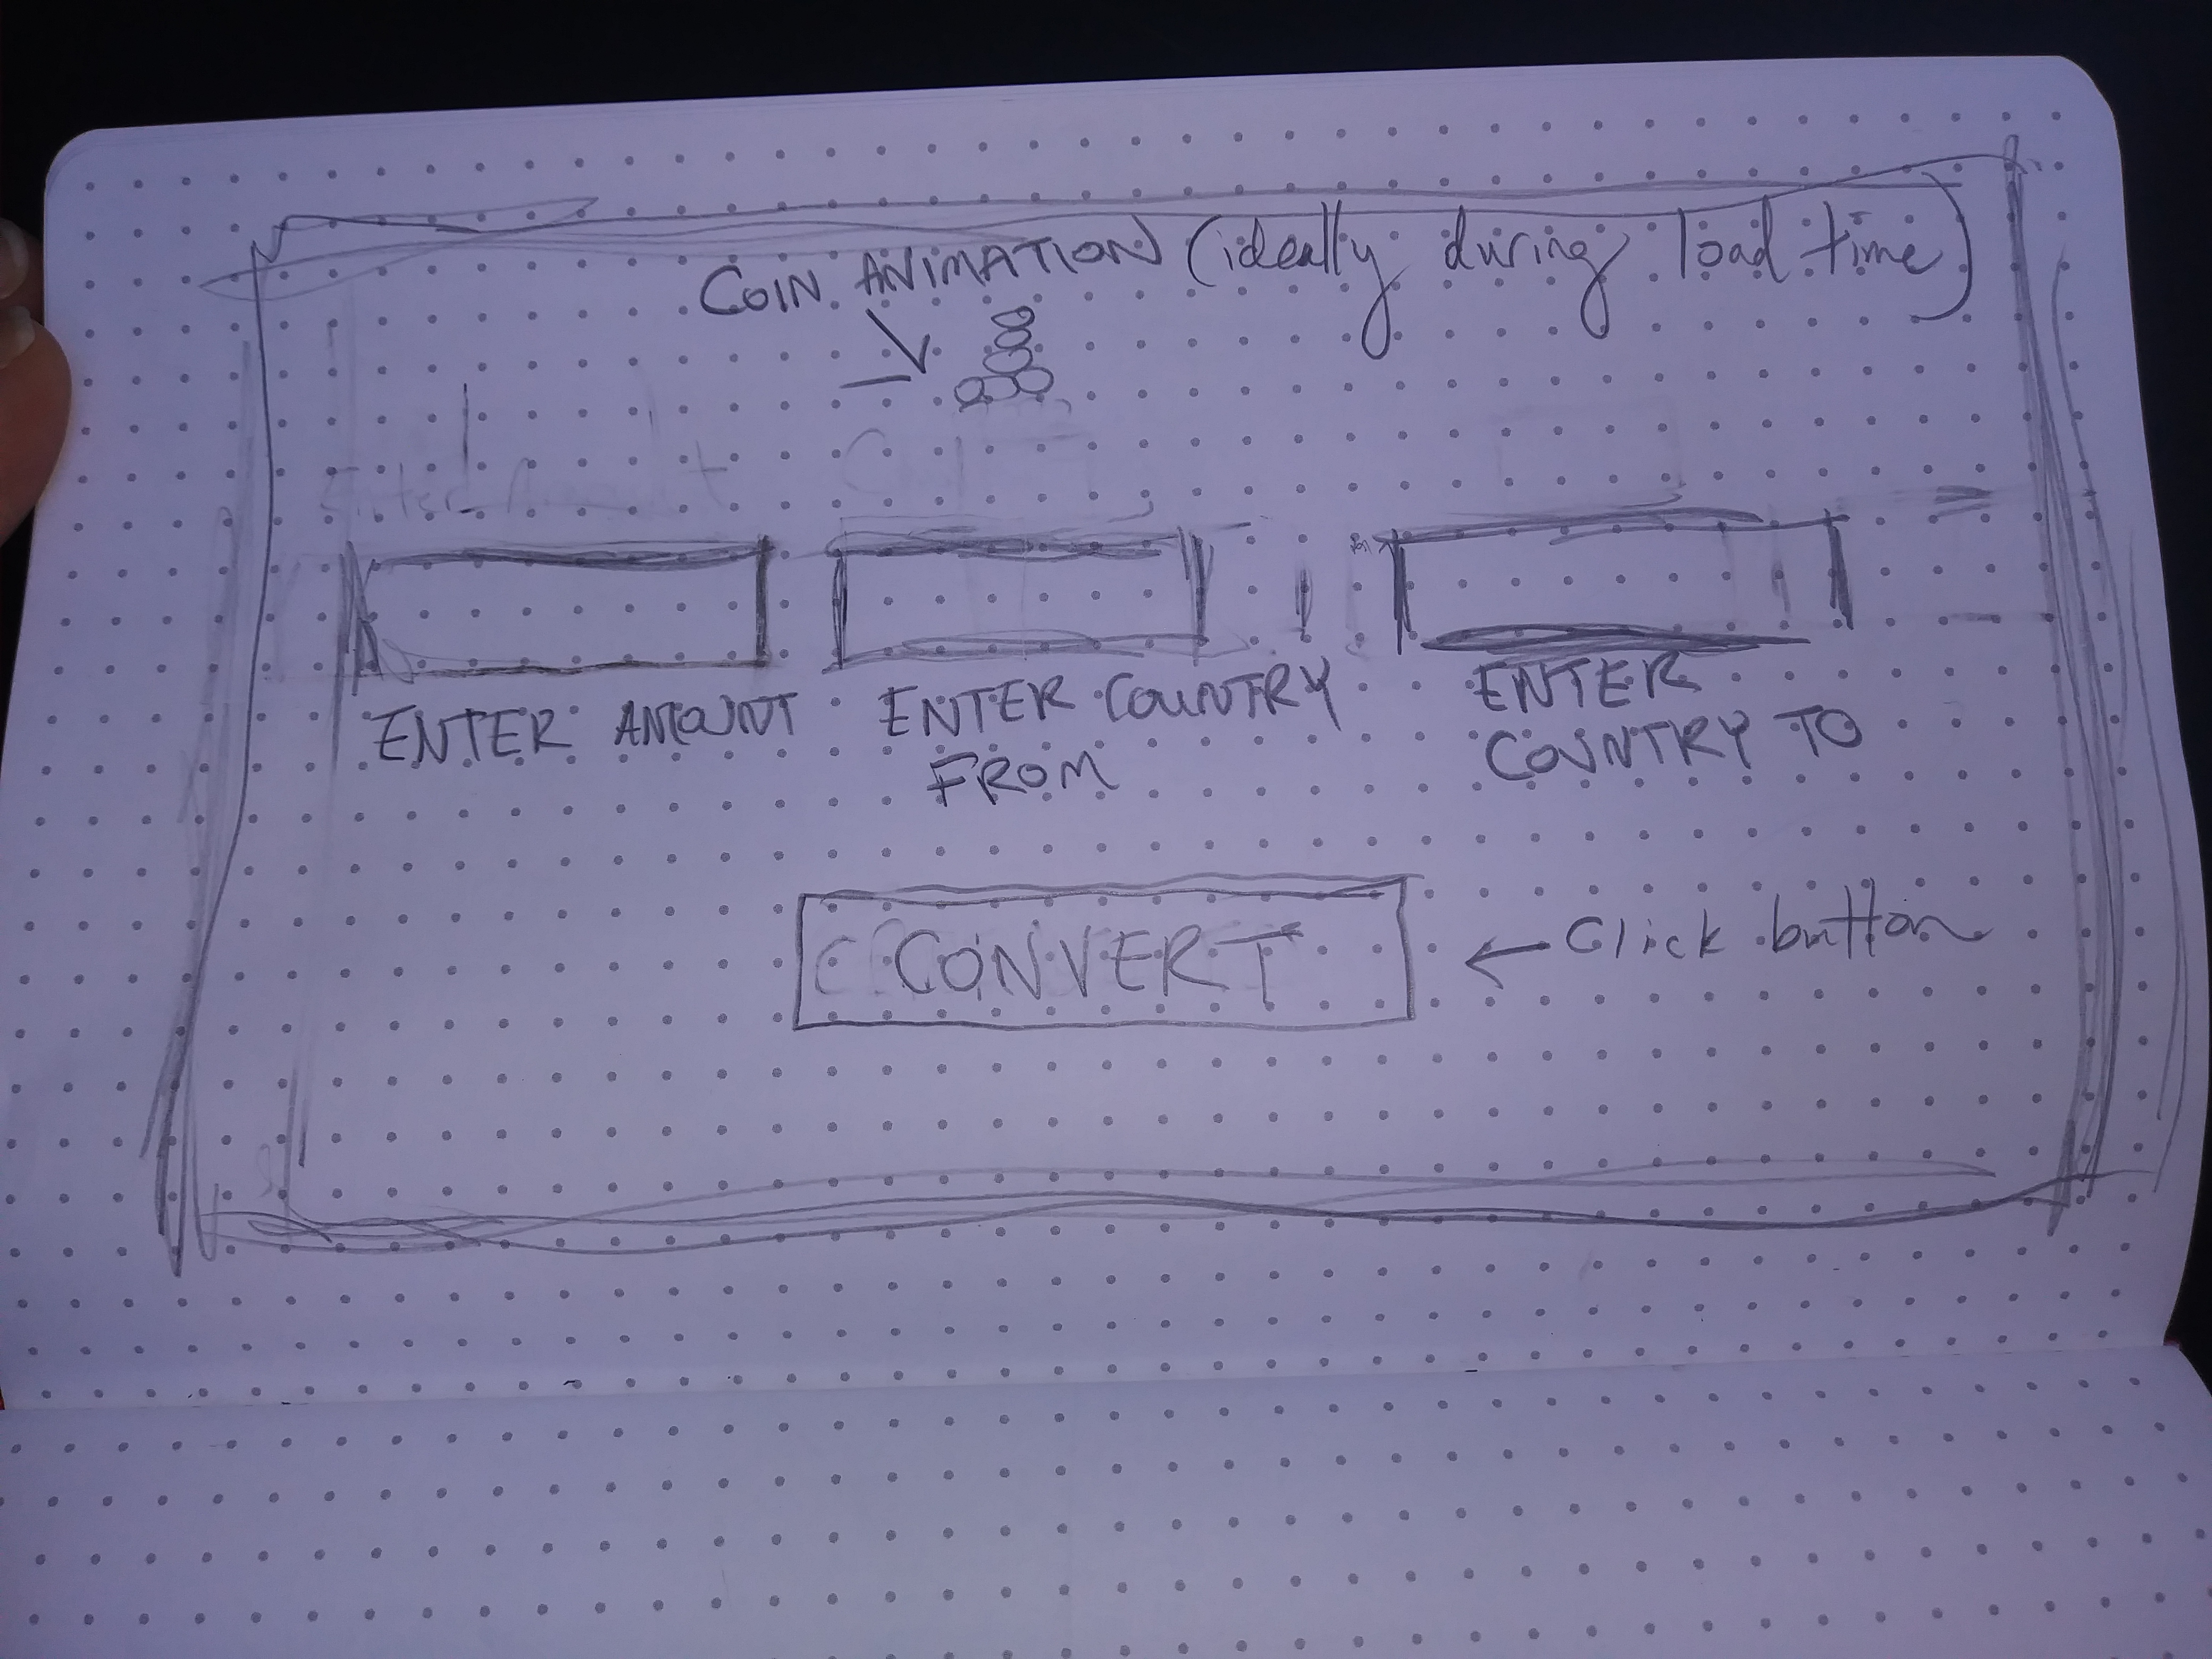 COIN ANIMATION (ideally during load time)
ENTER AMOUNT
ENTER COUNTRY
FROM
ENTER
COUNTRY TO
CONVERT
← Click button